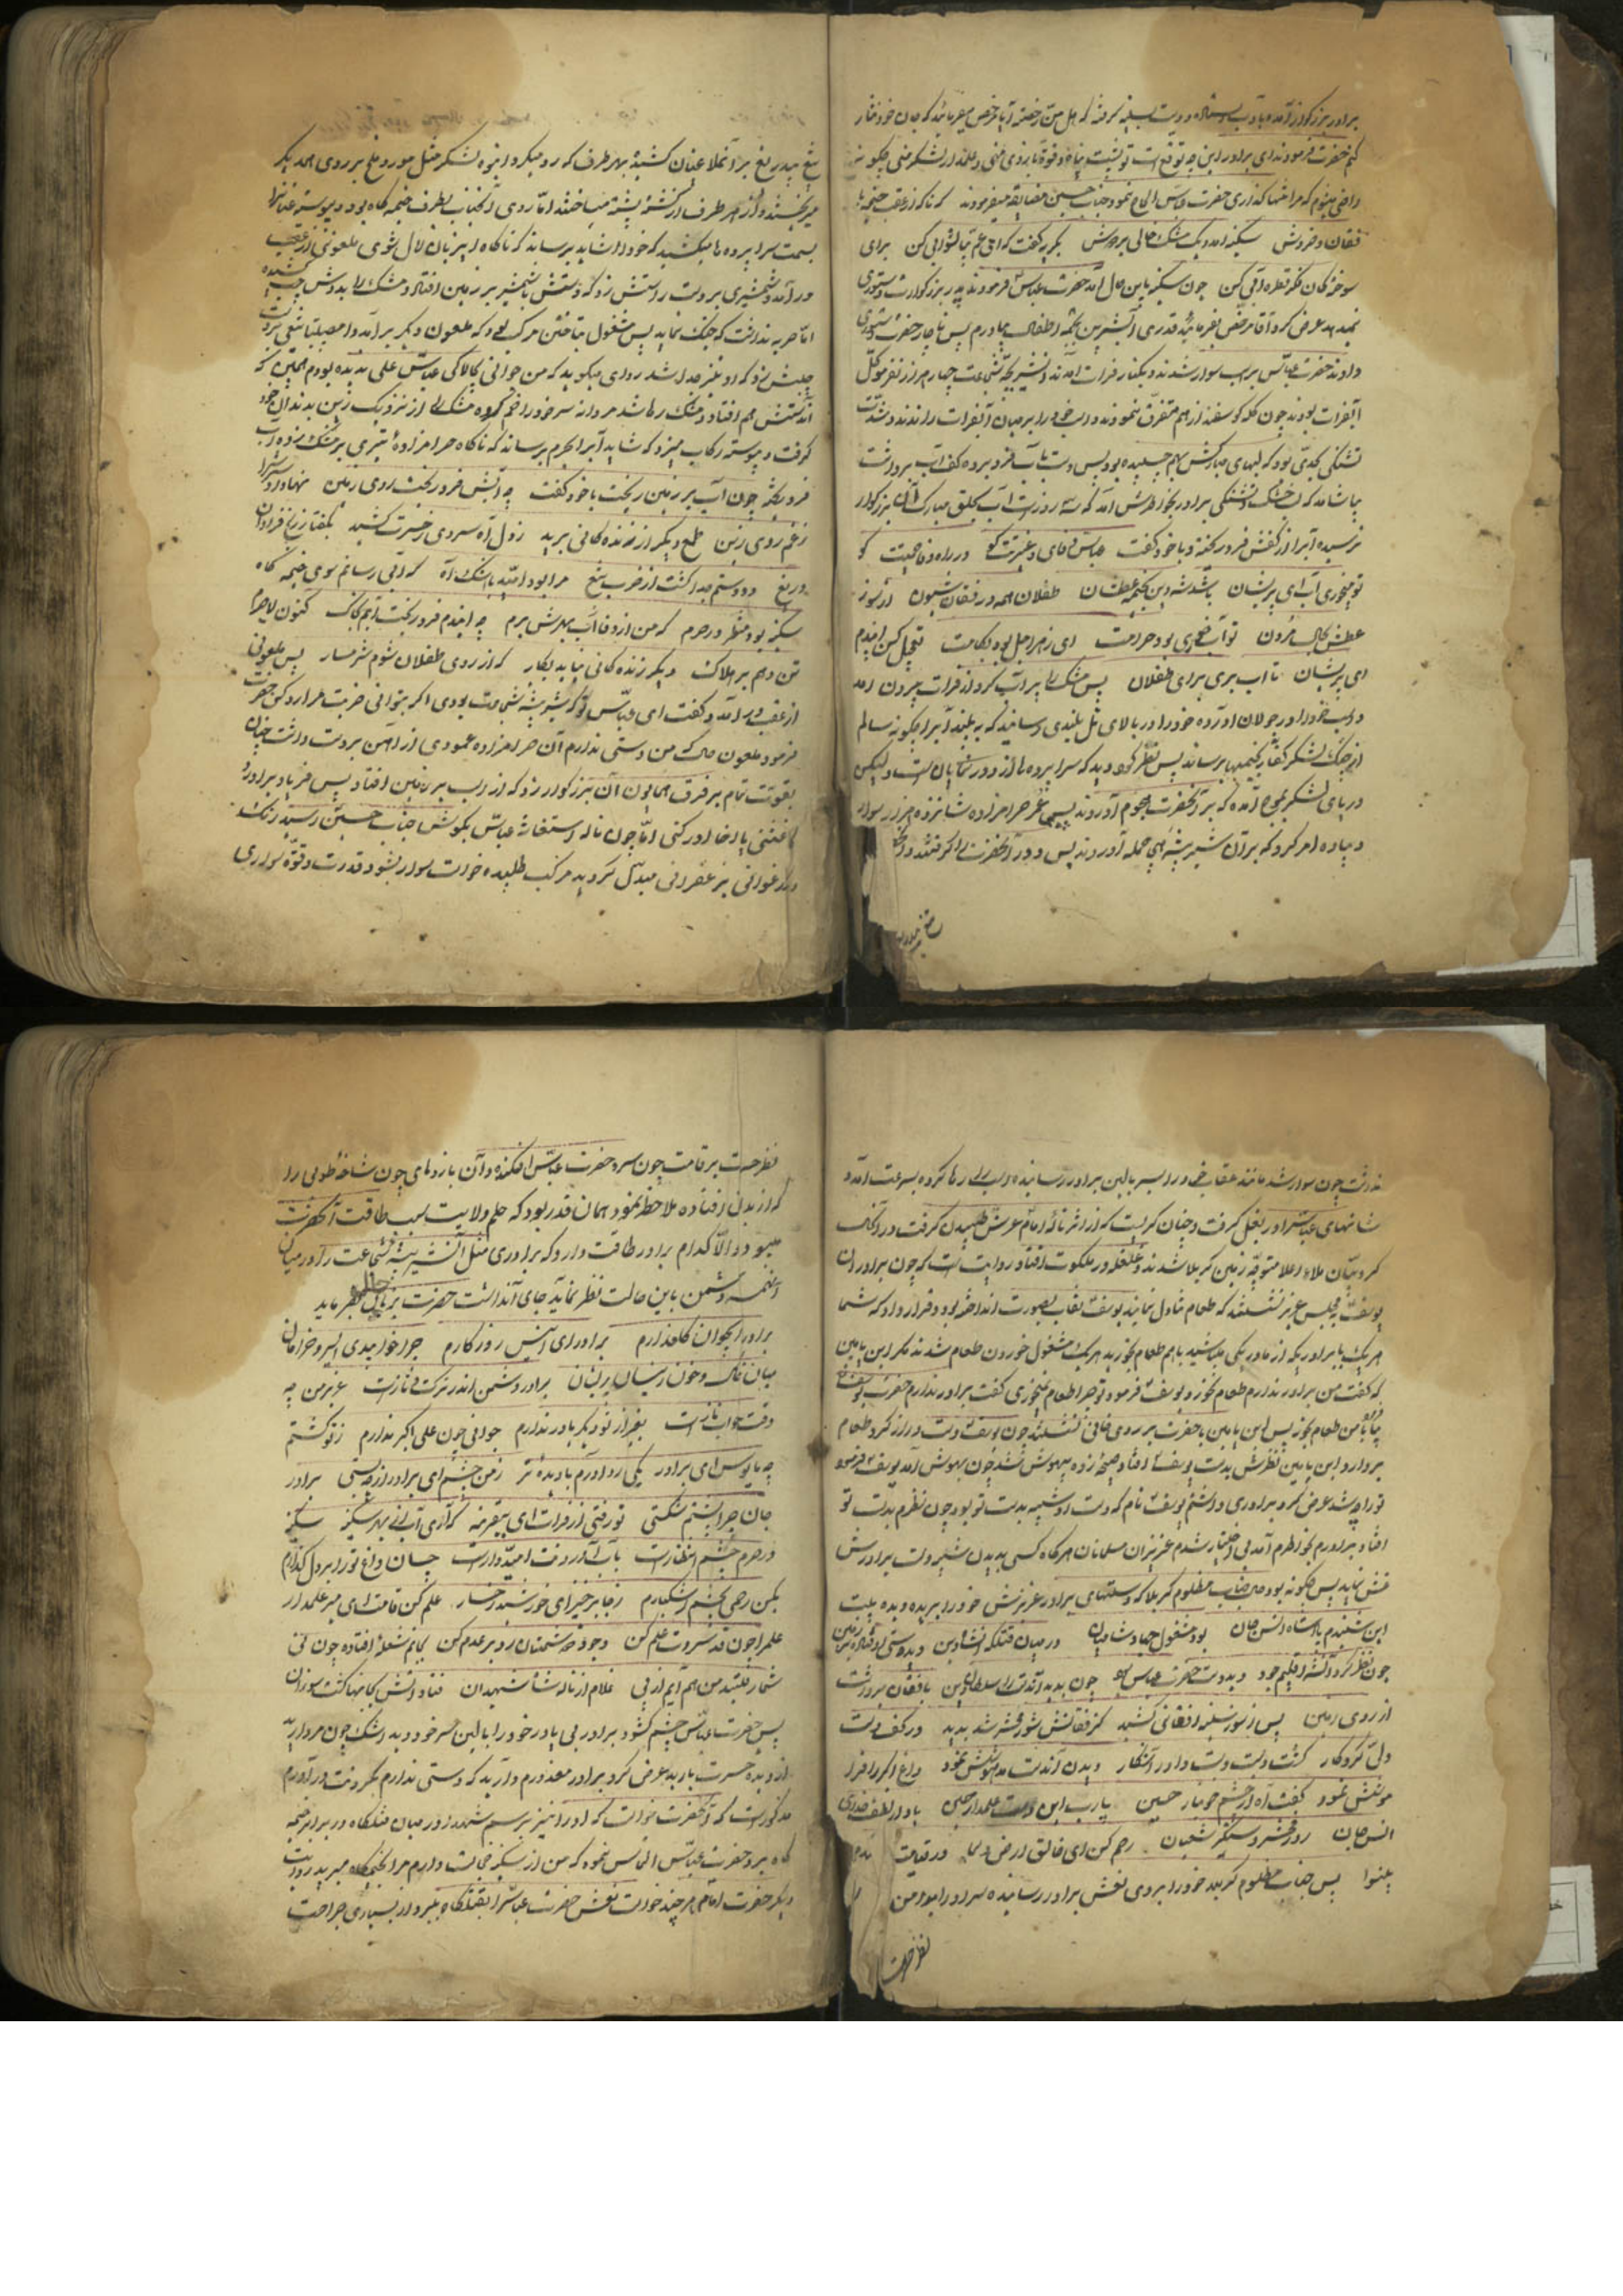 برادر بزرگوار آمده با آب دست بسینه گرفته که اهل من رخصت آیا مرخص میفرمائید که جان خود نثار
کنم حضرت فرمودند ای برادر این چه توقع است تو پشت پناه و قوة بازوی منی و علمدار لشکر منی چگونه
راضی میشوم که مرا تنها گذاری حضرت عباس الحاح نمود جناب حسین مضایقه میفرمودند که ناگاه از عقب خیمه‌ها
فغان و خروش سکینه آمد و یک مشک خالی بدوش بگریه گفت که ای عم بیا ثوابی کن برای
سوختگان فکر قطره آبی کن چون سکینه باین حال آمد حضرت عباس فرمودند پدر بزرگوارت دستوری
نمیدهد عرض کرد آقا مرخص بفرمائید قدری آب شیرین بجهة اطفال بیاورم پس ناچار حضرت دستوری
دادند حضرت عباس بر اسب سوار شدند و بکنار فرات آمدند و شیر بیشه شجاعت چهار هزار نفر موکل
آب فرات بودند چون گله گوسفند از هم متفرق نمودند و اسب خود را بر میان آب فرات راندند و شدت
تشنگی بحدی بود که لبهای مبارکش بهم چسبیده بود پس دست بآب فرو برده کف آب برداشت
بیاشامد که لب خشک و تشنگی برادر بخاطرش آمد که سه روز است آب بحلق مبارک آن بزرگوار
نرسیده آب را از کفش فرو ریخته و با خود گفت عباس وفای و غیرتت کو در راه وفا حمیت کو
تو میخوری آب ای پریشان باشد شه دین بخیمه عطشان طفلان همه در فغان و شیون از سوز
عطش بحال مردن تو آب خوری بود حرامت ای زهر اجل بود بکامت تعجیل کن ایندم
ای پریشان تا آب بری برای طفلان پس مشک را پر آب کرد از فرات بیرون آمد
و اسب خود را در جولان آورده خود را در بالای تل بلندی رسانید که به بیند آب را چگونه سالم
از جنگ لشکر کفار بخیمها برساند پس نظر کرد دید که سراپرده‌ها از دور نمایان است ولیکن
دریای لشکر بموج آمده که بر آنحضرت هجوم آوردند پس عمر حرامزاده شانزده هزار سوار
و پیاده امر کرد که بر آن شیر بیشه همگی حمله آوردند پس دور آنحضرت را گرفتند
تیغ بیدریغ بر آنملاعینان کشیده بهر طرف که رو میکرد انبوه لشکر مثل مور و ملخ بر روی همدیگر
میریختند و از هر طرف از کشته پشته میساختند اما روی آنجناب بطرف خیمه گاه بود و پیوسته عنان را
بسمت سراپرده‌ها میکشید که خود را شاید برساند که ناگاه اینزبان لال شوی ملعونی از عقب
در آمد و شمشیری بر دست راستش زد که دستش با شمشیر بر زمین افتاد و مشک را بدوش چپ کشیده
اما حربه نداشت که جنگ نماید پس مشغول بتاختن مرکب بود که ملعون دیگر بر آمد و امصیبتا تیغی بر دست
چپش زد که او نیز جدا شد راوی میگوید که من جوانی بچالاکی عباس علی ندیده بودم بجهة اینکه
آندستش هم افتاد و مشک رها شد مردانه سر خود را خم کرده مشک را از نزدیک زین بدندان خود
گرفت و پیوسته رکاب میزد که شاید آب را بحرم برساند که ناگاه حرامزادهٔ تیری بر مشک زده آب
فرو ریخت چون آب بر زمین ریخت با خود گفت چه آتش فرو ریخت روی زمین نهاد او سر را
ز غم روی زین طمع دیگر از زنده گانی برید ز دل آه سردی ز حسرت کشید بگفتا ز رنج فراوان
دریغ دو دستم جدا گشت از ضرب تیغ مرا بود امید با اشک آه که آبی رسانم سوی خیمه گاه
سکینه بود منتظر در حرم که من از وفا آب بهرش برم چه ایندم فرو ریخت آبم بخاک کنون لاجرم
تن دهم بر هلاک دیگر زنده گانی نیاید بکار که از روی طفلان شوم شرمسار پس ملعونی
از عقب در آمد و گفت ای عباس تو که شیر بیشه شجاعت بودی اگر بتوانی ضربت مرا رد کن حضرت
فرمود ملعون حال که من دستی ندارم آن حرامزاده عمودی از آهن بر دست داشت چنان
بقوت تمام بر فرق همایون آن بزرگوار زد که از اسب بر زمین افتاد پس فریاد برآورد
اغثنی یا اخا ادرکنی اما چون ناله استغاثه عباس بگوش جناب حسین رسید رنگ
ارغوانی بزعفرانی مبدل گردید مرکب طلبیده خواست سوار بشود قدرت و قوة سواری
نداشت چون سوار شد مانند عقاب خود را بسر بالین برادر رسانیده اسب را رها کرده بسرعت آمد و
شانهای عباس را در بغل گرفت و چنان گریست که از اثر نالهٔ امام عرش طپیدن گرفت در آنحال
کروبیان ملاء اعلا متوجه زمین کربلا شدند و غلغله در ملکوت افتاد روایت است که چون برادران
یوسف به مجلس عزیز نشستند که طعام تناول نمایند یوسف نقاب بصورت انداخته بود و قرار داد که شما
هر یک با برادریکه از مادر یکی میباشید باهم طعام بخورید هر یک مشغول خوردن طعام شدند مگر ابن یامین
که گفت من برادر ندارم طعام نخورد یوسف فرمود تو چرا طعام نمیخوری گفت برادر ندارم حضرت یوسف فرمود
بیا با من طعام بخور پس ابن یامین با حضرت بر روی خانی نشستند چون یوسف دست دراز کرد طعام
بردارد ابن یامین نظرش بدست یوسف افتاد صیحه زده بیهوش شد چون بهوش آمد یوسف فرمود
ترا چه شد عرض کرد برادری داشتم یوسف نام که دست او شبیه بدست تو بود چون نظرم بدست تو
افتاد برادرم بخواطرم آمد بی اختیار شدم عزیزان مسلمانان هرگاه کسی بدیدن شبیه دست برادرش
غش نماید پس چگونه بود حال جناب مظلوم کربلا که دستهای برادر عزیزش خود را بریده دیده بیت
این شنیدم پادشاه انس و جان بود مشغول جهاد شامیان در میان قتلگه آنشاه دین دید دستی اوفتاده بر زمین
چون نظر کرد آن شه اقلیم جود دید دست حضرت عباس بود چون بدید آندست را سلطان دین با فغان برداشت
از روی زمین پس ز سوز سینه افغانی کشید کز فغانش شور محشر شد پدید در کف دست
ولی کردگار گشت دست و دست داور آشکار دیدن آندست مدهوشش نمود داغ اکبر را فرا
موشش نمود گفت آه از چشم خونبار حسین یارب این دست علمدار حسین
انس و جان روز محشر دستگیر شیعیان رحم کن ای خالق ارض و سما در قیامت
بینوا پس جناب مظلوم کربلا خود را بر روی نعش برادر رسانیده سر او را بدامن
نظر حسرت
نظر حسرت بر قامت چون سرو حضرت عباس افکنده و آن بازوهای چون شاخهٔ طوبی را
که از بدن افتاده ملاحظه نمود همان قدر بود که حلم ولایت سبب طاقت آنحضرت
میبود و الا کدام برادر طاقت دارد که برادری مثل آن شیر بیشه شجاعت را در میان
آنهمه دشمن باین حالت نظر نماید جای آنداشت حضرت بزبان حال بفرماید
برادر ایجوان گلعذارم برادر ای انیس روزگارم چرا خوابیدی ای سرو خرامان
میان خاک و خون زینسان پریشان برادر دشمن اندر ترک تاز است عزیز من چه
وقت خواب ناز است بغیر از تو دیگر یاور ندارم جوانی چون علی اکبر ندارم ز تو گشتم
چه مایوس ای برادر یکی رو آورم با دیدهٔ تر ز من چشم ای برادر از چه بستی برادر
جان چرا پشتم شکستی تو رفتی از فرات ای بیقرینه که آری آب از بهر سکینه سکینه
در حرم چشم انتظار است بآب آوردنت امیدوار است چسان داغ تو را بر دل گذارم
بکن رحمی بچشم اشکبارم ز جا برخیز ای خورشید رخسار علم کن قامت ای میر علمدار
علم را چون قد سروت علم کن وجود دشمنان رو بر عدم کن بجانم شعله افتاده چون نی
شمار بیکسیم من هم آیم از پی غلام از ناله شاه شهیدان فتاد آتش بجانها گشت سوزان
پس حضرت عباس چشم گشود برادر بی یاور خود را بالین سر خود دید اشک چون مروارید
از دیده حسرت بارید عرض کرد برادر معذورم دارید که دستی ندارم بگردنت در آورم
مذکور است که آنحضرت خواست که او را نیز برسم شهدا در میان قتلگاه در برابر خیمه
گاه برد حضرت عباس التماس نمود که من از سکینه خجالت دارم مرا بخیمه‌گاه مبرید روایت
دیگر حضرت امام هر چند خواست نعش حضرت عباس را بقتلگاه ببرد از بسیاری جراحت